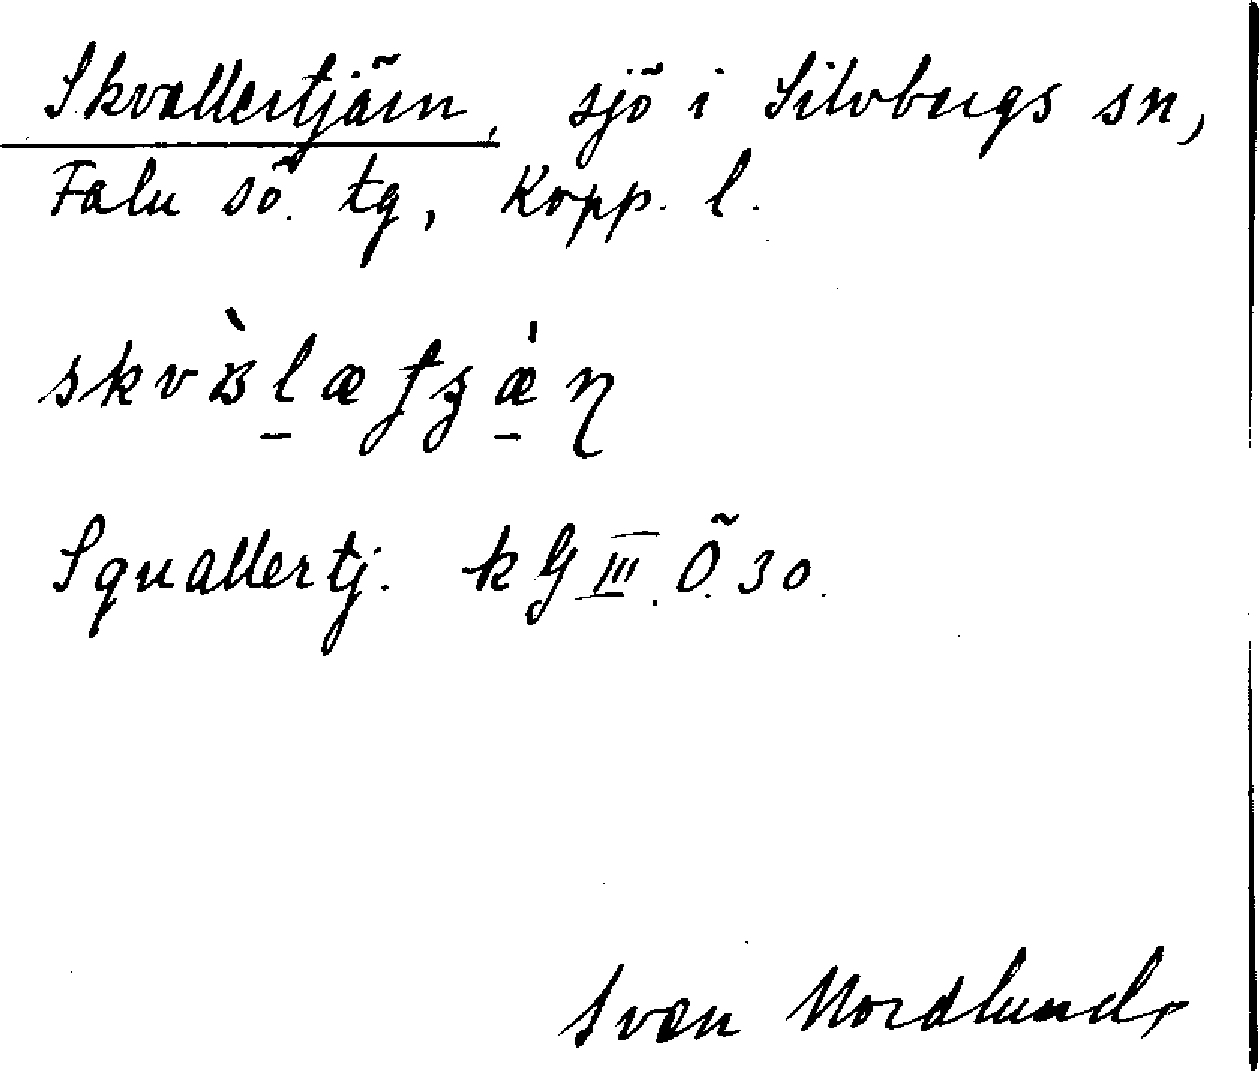 Skvallertjärn, sjö i Silvbergs sn,
Falu sö. tg, Kopp. l.
Squallertj. kG III. Ö. 30.
Sven Nordlund